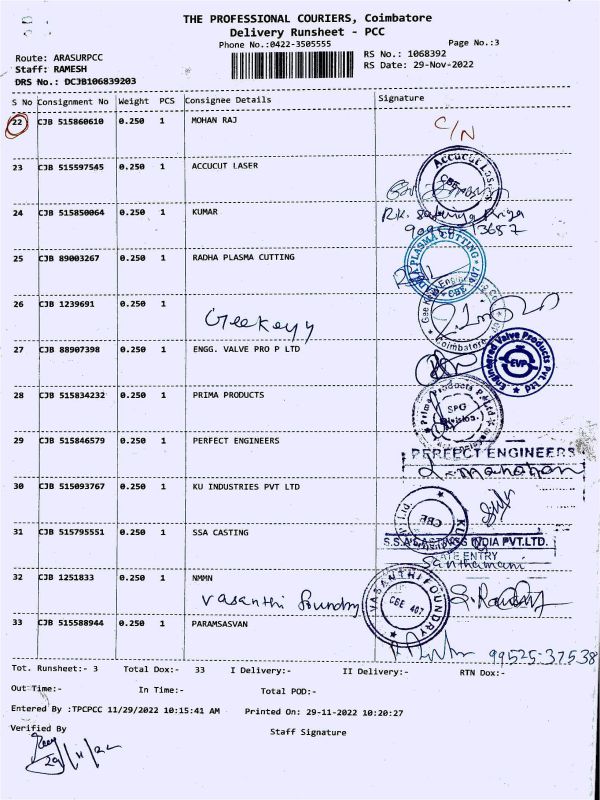 THE PROFESSIONAL COURIERS, Coimbatore
Delivery Runsheet - PCC
Phone No.:0422-3505555
Page No.:3
Route: ARASURPCC
RS No.: 1068392
Staff: RAMESH
RS Date: 29-Nov-2022
DRS No.: DCJB106839203
S No Consignment No Weight PCS Consignee Details Signature
22 CJB 515860610 0.250 1 MOHAN RAJ C/N
23 CJB 515597545 0.250 1 ACCUCUT LASER
ACCUCUT LASER CBE
24 CJB 515850064 0.250 1 KUMAR
25 CJB 89003267 0.250 1 RADHA PLASMA CUTTING
RADHA PLASMA CUTTING CBE
26 CJB 1239691 0.250 1
Geekeyy
Coimbatore
27 CJB 88907398 0.250 1 ENGG. VALVE PRO P LTD
Engineered Valve Products Pvt Ltd EVP
28 CJB 515834232 0.250 1 PRIMA PRODUCTS
Prima Products P Ltd SPG Division.
29 CJB 515846579 0.250 1 PERFECT ENGINEERS
PERFECT ENGINEERS
30 CJB 515093767 0.250 1 KU INDUSTRIES PVT LTD
CBE
31 CJB 515795551 0.250 1 SSA CASTING
S.S.A CASTINGS INDIA PVT.LTD.
GATE ENTRY
Santhamani
32 CJB 1251833 0.250 1 NMMN
Vasanthi foundry
VASANTHI FOUNDRY CBE 407
33 CJB 515588944 0.250 1 PARAMSASVAN
99525-37538
Tot. Runsheet:- 3 Total Dox:- 33 I Delivery:- II Delivery:- RTN Dox:-
Out Time:- In Time:- Total POD:-
Entered By :TPCPCC 11/29/2022 10:15:41 AM Printed On: 29-11-2022 10:20:27
Verified By Staff Signature
29/11/22